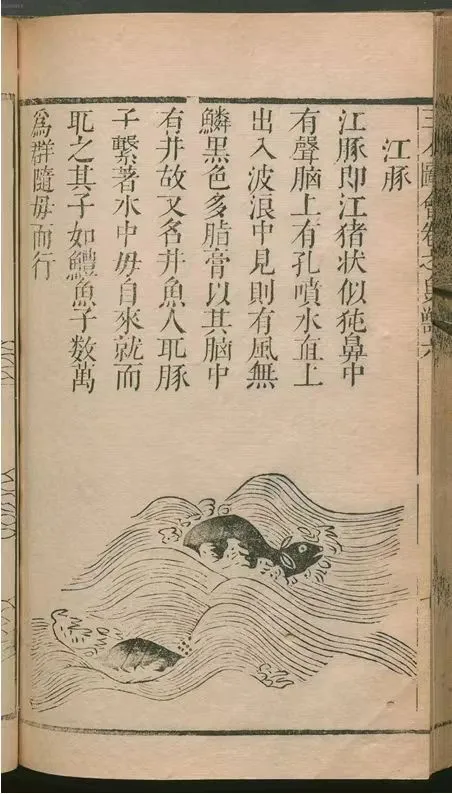 三才圖會卷之鳥獸六
江豚
江豚即江猪状似㹠鼻中
有聲腦上有孔噴水直上
出入波浪中見則有風無
鱗黑色多脂膏以其腦中
有井故又名井魚人耴豚
子繫著水中毋自來就而
耴之其子如鱧魚子数萬
為群隨毋而行